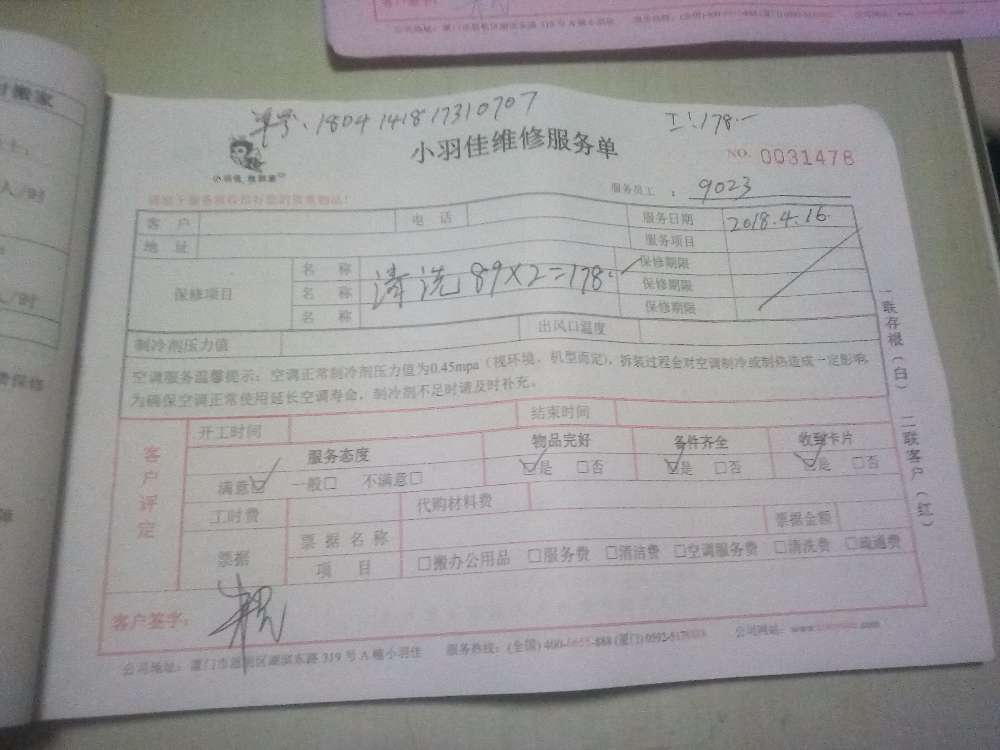 单号：1804141817310707
工：178.—
小羽佳维修服务单
NO. 0031478
服务员工：9023
客 户 电 话 服务日期 2018.4.16.
地 址 服务项目
保修项目 名 称 清洗 89×2=178. 保修期限
名 称 保修期限
名 称 保修期限
制冷剂压力值 出风口温度
空调服务温馨提示：空调正常制冷剂压力值为0.45mpa（视环境、机型而定），拆装过程会对空调制冷或制热造成一定影响
为确保空调正常使用延长空调寿命，制冷剂不足时请及时补充。
客户评定 开工时间 结束时间
服务态度 物品完好 备件齐全 收到卡片
满意☑ 一般□ 不满意□ ☑是 □否 ☑是 □否 ☑是 □否
工时费 代购材料费
票据 票 据 名 称 票据金额
项 目 □搬办公用品 □服务费 □清洁费 □空调服务费 □清洗费 □疏通费
客户签字：
公司地址：厦门市思明区湖滨东路 319 号 A 幢小羽佳 服务热线：(全国) 400- -888 (厦门) 0592- 公司网站：www.
一联存根（白） 二联客户（红）